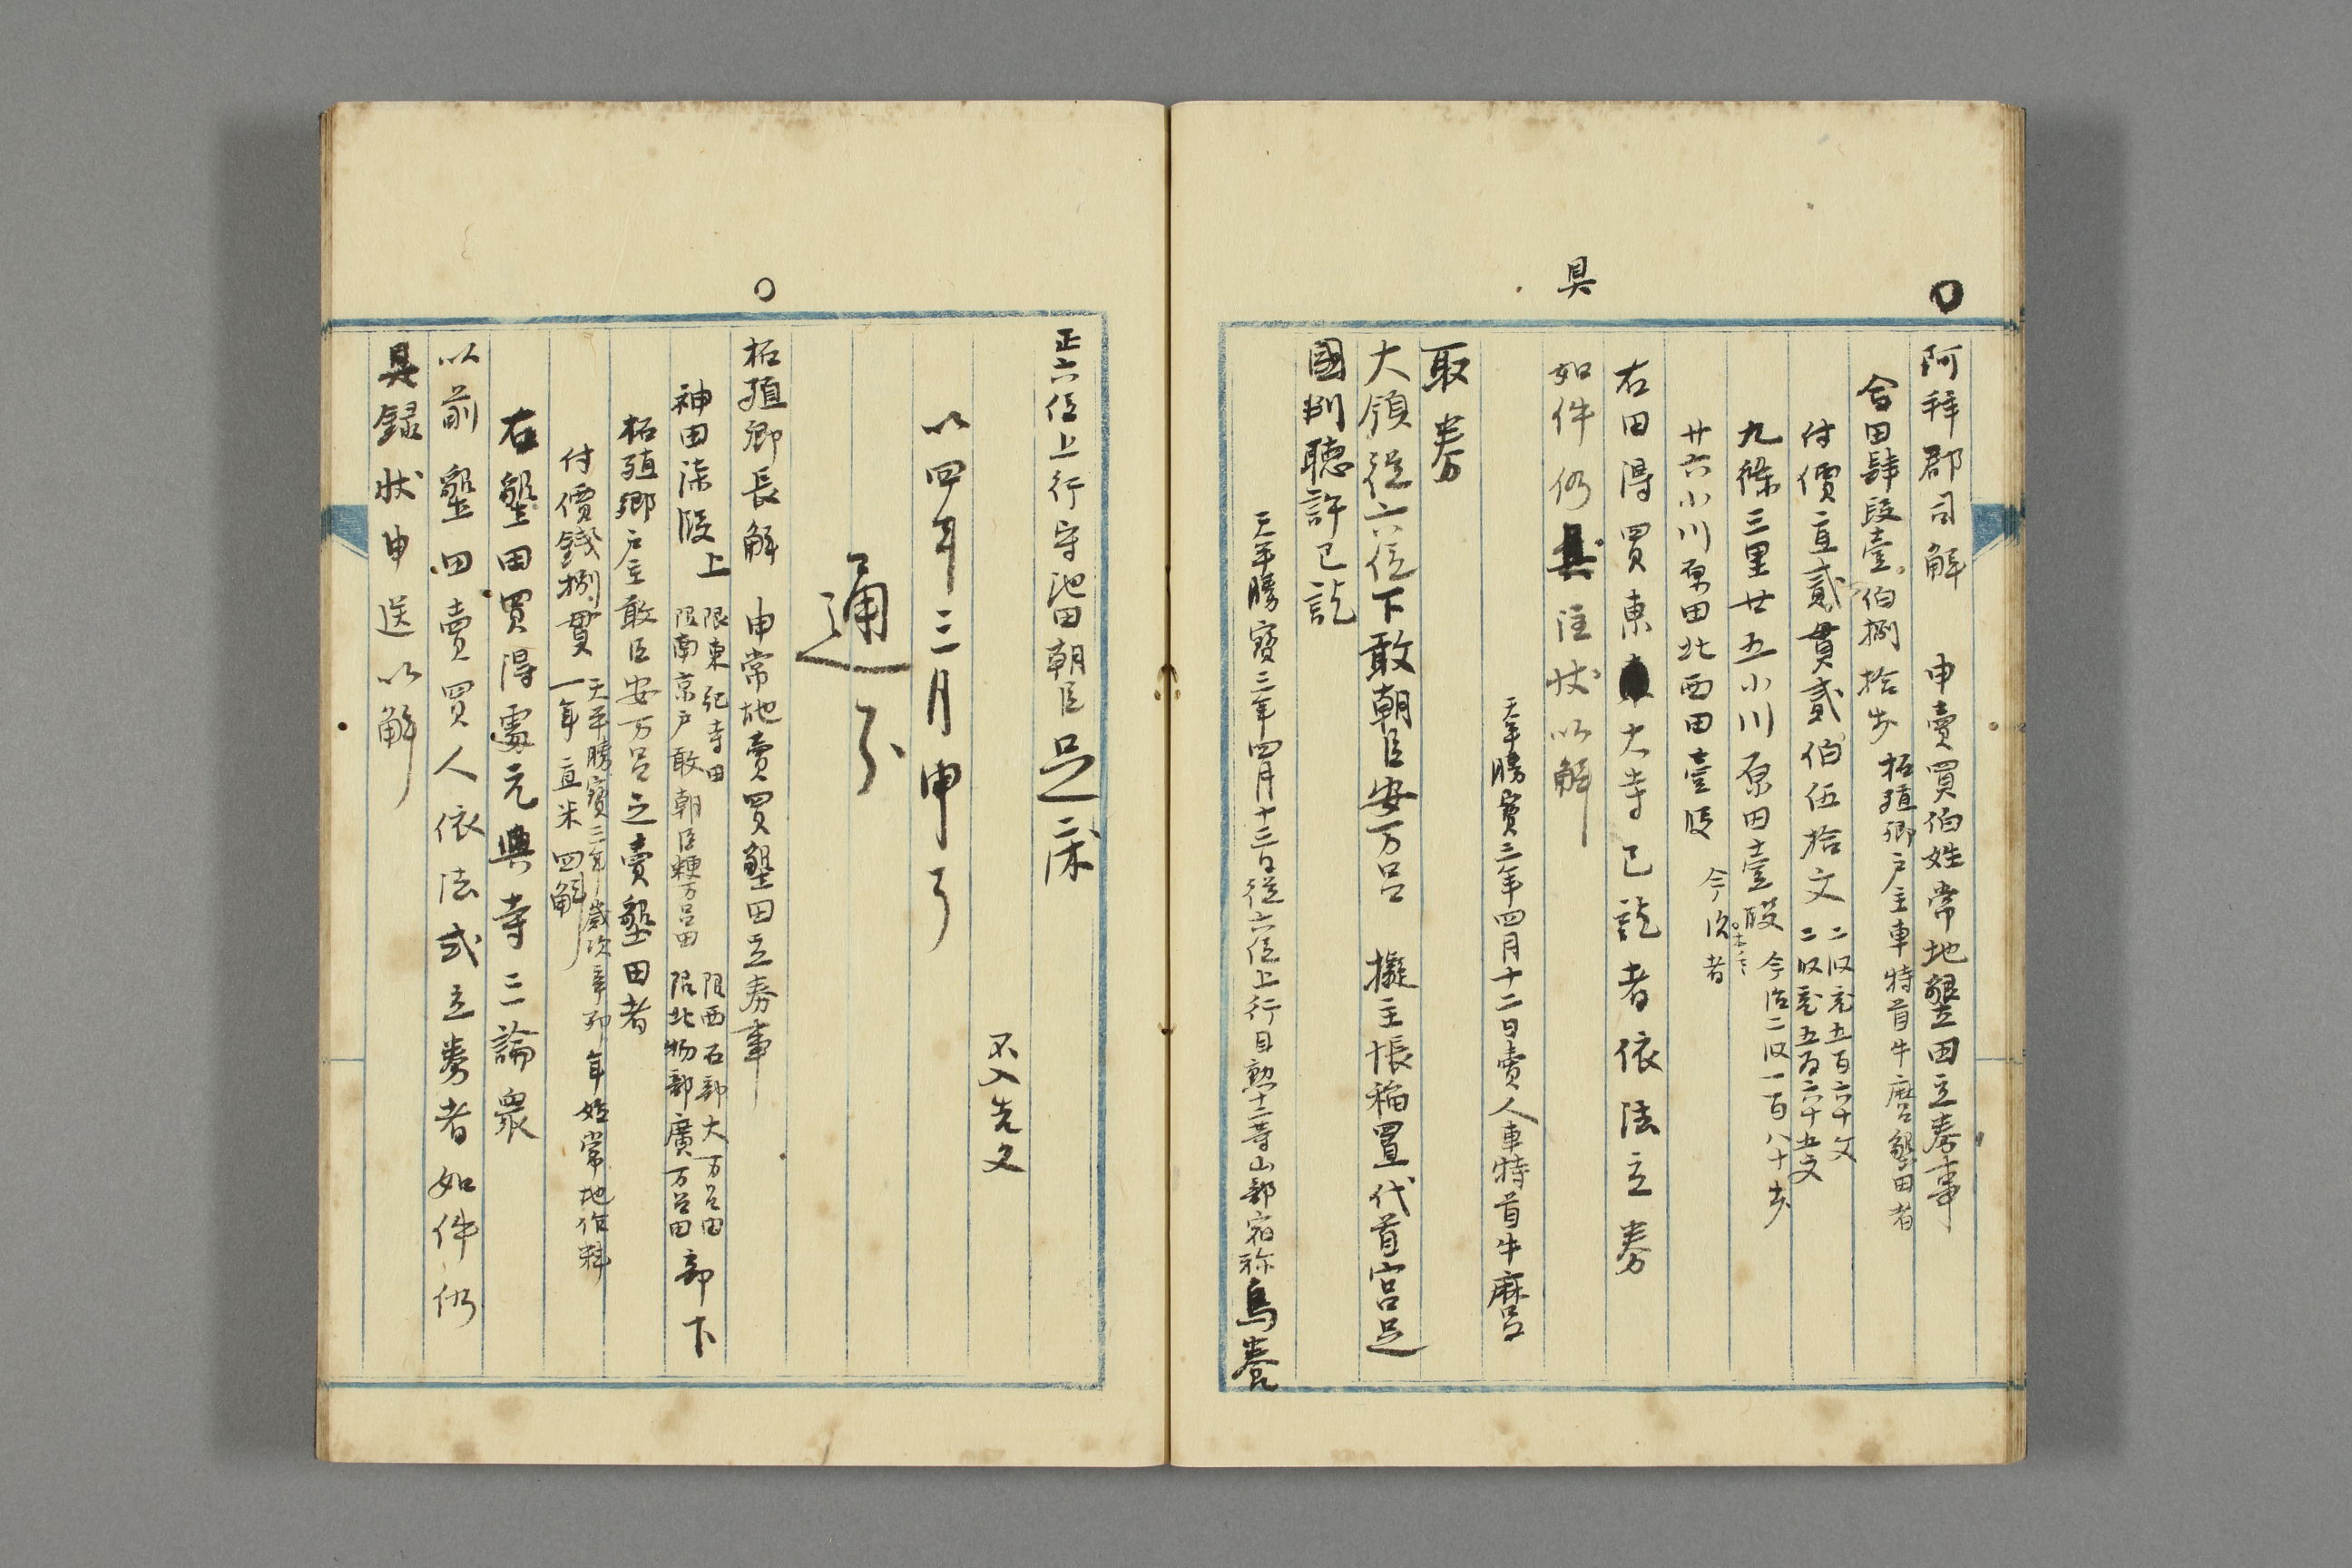 阿拝郡司解　申賣買伯姓常地墾田立券事
合田肆段壹伯捌拾歩　柘殖郷戸主車特首牛麿墾田者
付價直貳貫貳伯伍拾文
九條三里廿五小川原田壹段
廿六小川原田北西田壹段
右田得買東大寺已訖者依法立券
具
如件仍具注状以解
天平勝寳三年四月十二日賣人車特首牛麿
取券
大領従六位下敢朝臣安万呂　擬主帳稲置代首宮足
國判聴許已訖
天平勝寳三年四月十三日従六位上行目勲十二等山部宿祢馬養
正六位上行守池田朝臣足床
不入先文
以四年三月申了
通了
柘殖郷長解　申常地賣買墾田立券事
神田漆段
上
限東紀寺田
限南京戸敢朝臣粳万呂田
限西石部大万呂田
限北物部廣万呂田
部下
柘殖郷戸主敢臣安万呂之賣墾田者
付價銭捌貫
天平勝寳三年歳次辛卯年始常地作料
一年直米四斛
右墾田買得處元興寺三論衆
以前墾田賣買人依法式立券者如件仍
具録状申送以解